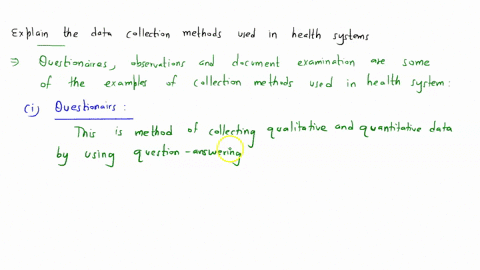 Explain the data collection methods used in health systems
⇒ Questionaires, observations and document examination are some
of the examples of collection methods used in health system:
(i) Questionairs:
This is method of collecting qualitative and quantitative data
by using question-answering